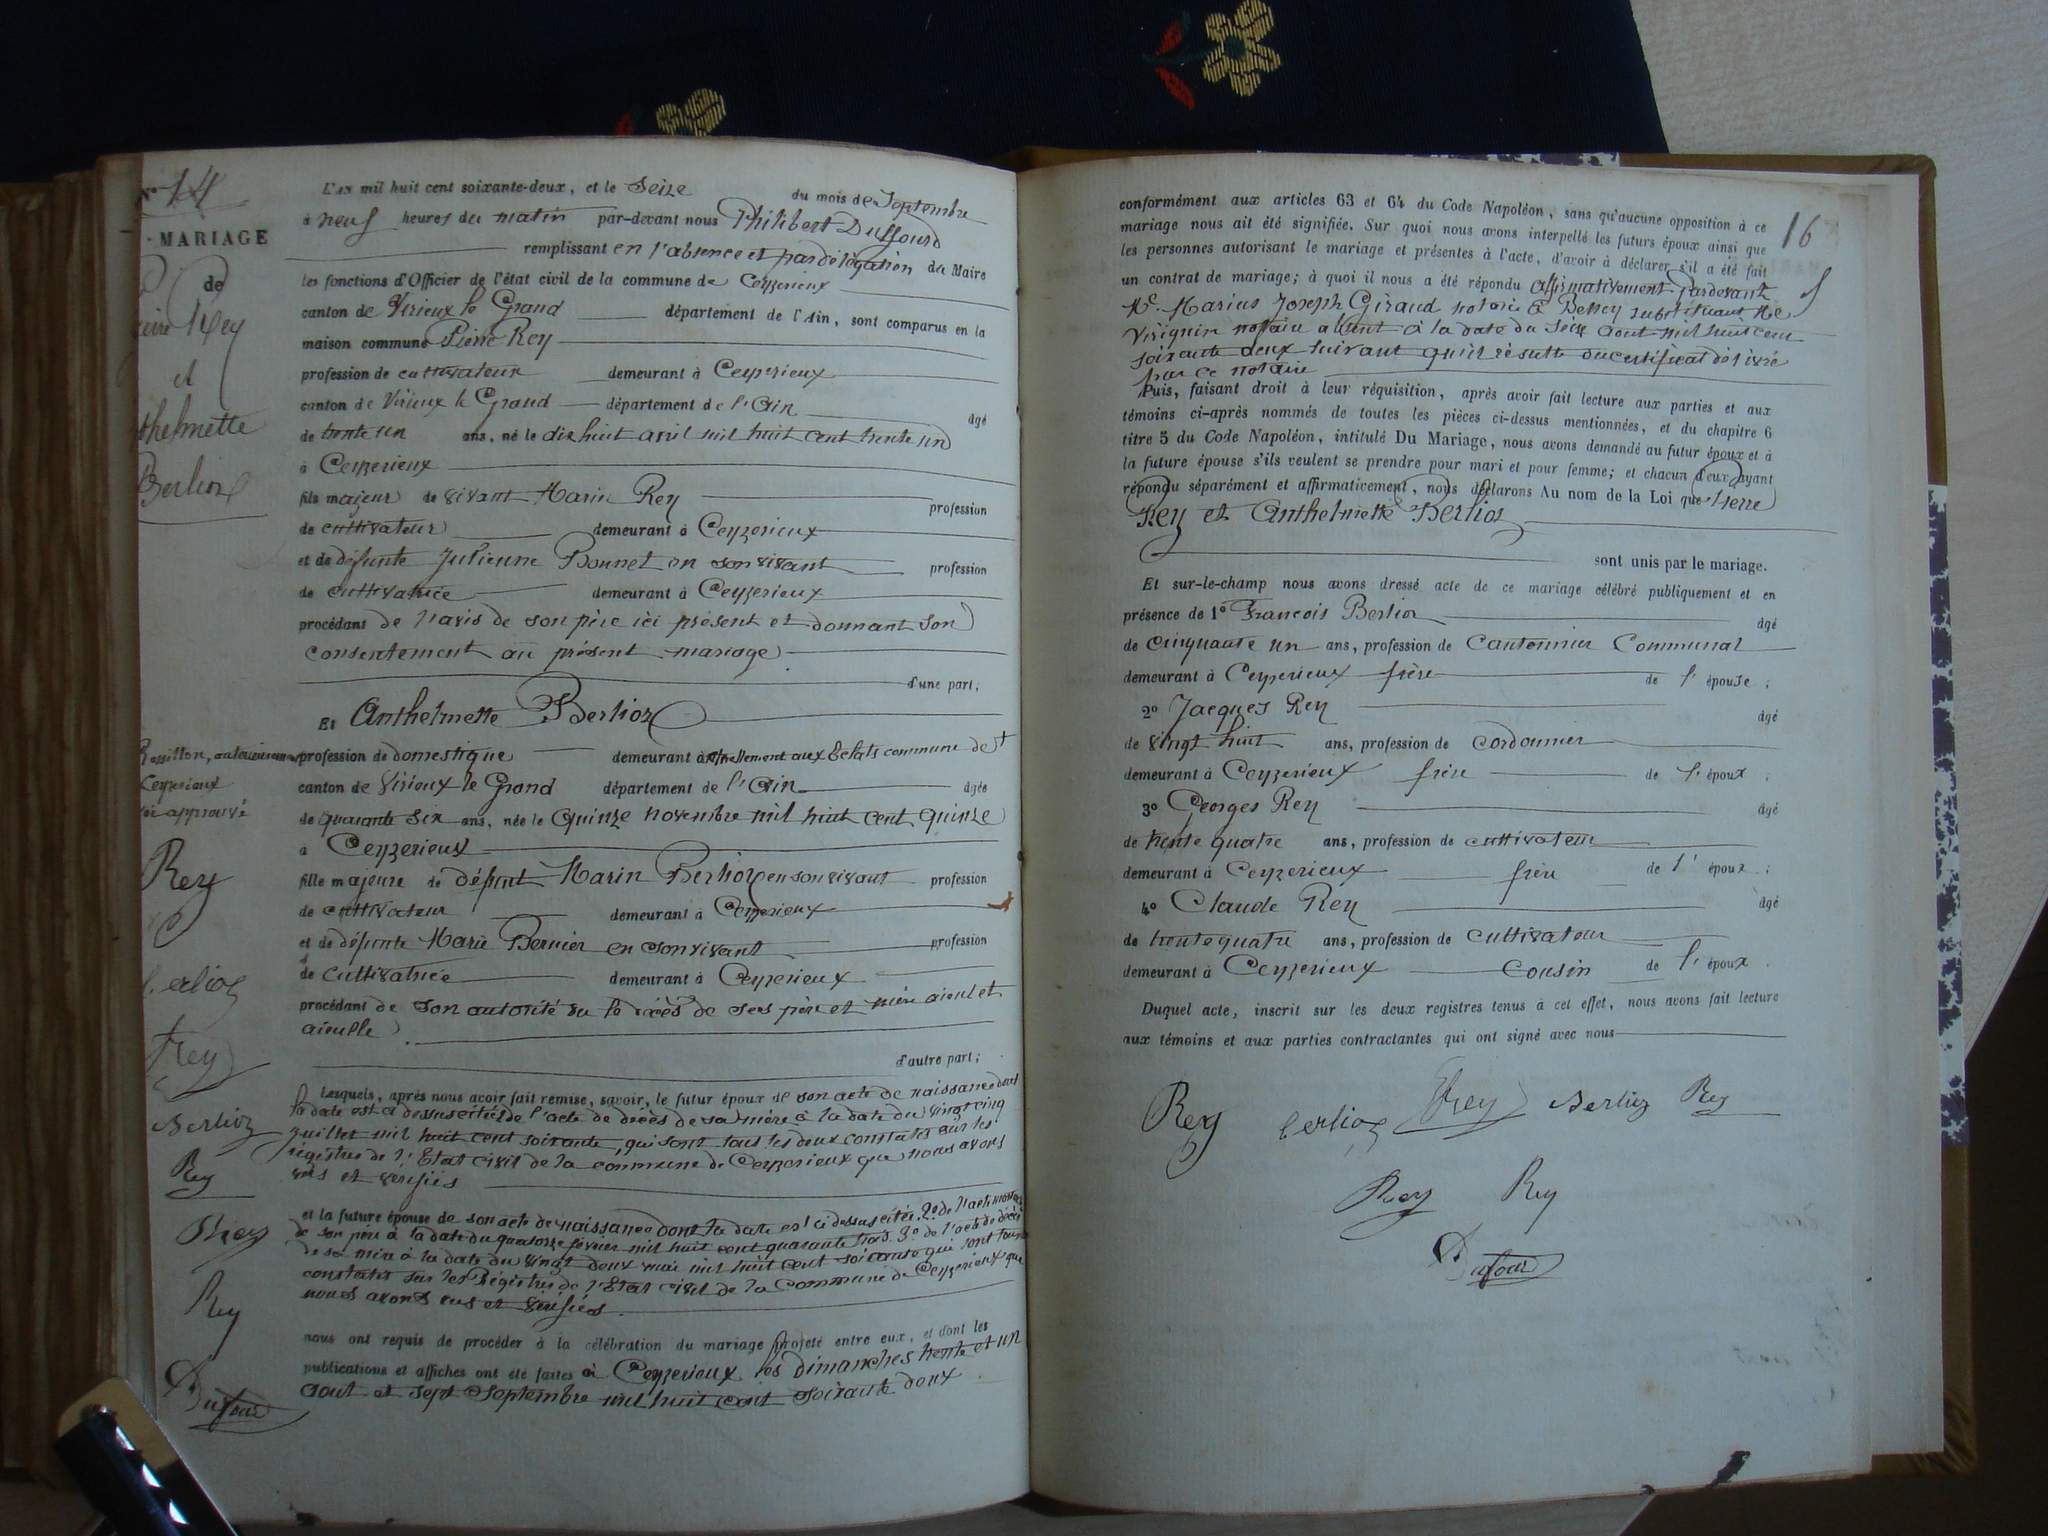 N° 14
MARIAGE
de
Rey
et
thelmette
Berlioz
L'an mil huit cent soixante-deux, et le Seize du mois de Septembre
à neuf heures du matin par-devant nous Philibert Duffourd
remplissant en l'absence et par délégation du Maire
les fonctions d'Officier de l'état civil de la commune de Ceyzerieux
canton de Virieux le Grand département de l'Ain, sont comparus en la
maison commune Pierre Rey
profession de cultivateur demeurant à Ceyzerieux
canton de Virieux le Grand département de l'Ain âgé
de trente un ans, né le dix huit avril mil huit cent trente un
à Ceyzerieux
fils majeur de vivant Marin Rey profession
de cultivateur demeurant à Ceyzerieux
et de défunte Julienne Bonnet en son vivant profession
de cultivatrice demeurant à Ceyzerieux
procédant de l'avis de son père ici présent et donnant son
consentement au présent mariage
d'une part;
Et Anthelmette Berlioz
profession de domestique demeurant à actuellement aux Eclats commune de +
Rossillon, antérieurement
Ceyzerieux
approuvé
canton de Virieux le Grand département de l'Ain âgée
de quarante six ans, née le quinze novembre mil huit cent quinze
à Ceyzerieux
fille majeure de défunt Marin Berlioz en son vivant profession
de cultivateur demeurant à Ceyzerieux
et de défunte Marie Bernier en son vivant profession
de cultivatrice demeurant à Ceyzerieux
procédant de son autorité vu le décès de ses père et mère aieul et
aieulle.
d'autre part;
Lesquels, après nous avoir fait remise, savoir, le futur époux de son acte de naissance dont
la date est ci dessus citée de l'acte de décès de sa mère à la date du vingt cinq
juillet mil huit cent soixante, qui sont tous les deux constatés sur les
régistres de l'Etat civil de la commune de Ceyzerieux que nous avons
vus et vérifiés
et la future épouse de son acte de naissance dont la date est ci dessus citée. 2° de l'acte
de son père à la date du quatorze février mil huit cent quarante trois. 3° de l'acte de décès
de sa mère à la date du vingt deux mai mil huit cent soixante qui sont tous
constatés sur les Régistres de l'Etat civil de la Commune de Ceyzerieux que
nous avons vus et vérifiés.
nous ont requis de procéder à la célébration du mariage projeté entre eux, et dont les
publications et affiches ont été faites à Ceyzerieux les dimanches trente et un
aout et sept septembre mil huit cent soixante deux
Rey
Berlioz
Rey
Berlioz
Rey
Rey
Rey
Dufour
16
conformément aux articles 63 et 64 du Code Napoléon, sans qu'aucune opposition à ce
mariage nous ait été signifiée. Sur quoi nous avons interpellé les futurs époux ainsi que
les personnes autorisant le mariage et présentes à l'acte, d'avoir à déclarer s'il a été fait
un contrat de mariage; à quoi il nous a été répondu affirmativement pardevant
Me Marius Joseph Giraud notaire à Belley substituant Me
Virignin notaire absent à la date du seize aout mil huit cent
soixante deux suivant qu'il résulte du certificat délivré
par ce notaire
Puis, faisant droit à leur réquisition, après avoir fait lecture aux parties et aux
témoins ci-après nommés de toutes les pièces ci-dessus mentionnées, et du chapitre 6
titre 5 du Code Napoléon, intitulé Du Mariage, nous avons demandé au futur époux et à
la future épouse s'ils veulent se prendre pour mari et pour femme; et chacun d'eux ayant
répondu séparément et affirmativement, nous déclarons Au nom de la Loi que Pierre
Rey et Anthelmette Berlioz
sont unis par le mariage.
Et sur-le-champ nous avons dressé acte de ce mariage célébré publiquement et en
présence de 1° François Berlioz âgé
de cinquante un ans, profession de Cantonnier Communal
demeurant à Ceyzerieux frère de l'épouse;
2° Jacques Rey âgé
de vingt huit ans, profession de cordonnier
demeurant à Ceyzerieux frère de l'époux.
3° Georges Rey âgé
de trente quatre ans, profession de cultivateur
demeurant à Ceyzerieux frère de l'époux;
4° Claude Rey âgé
de trente quatre ans, profession de cultivateur
demeurant à Ceyzerieux cousin de l'époux.
Duquel acte, inscrit sur les deux registres tenus à cet effet, nous avons fait lecture
aux témoins et aux parties contractantes qui ont signé avec nous
Rey Berlioz Rey Berlioz Rey
Rey Rey
Dufour